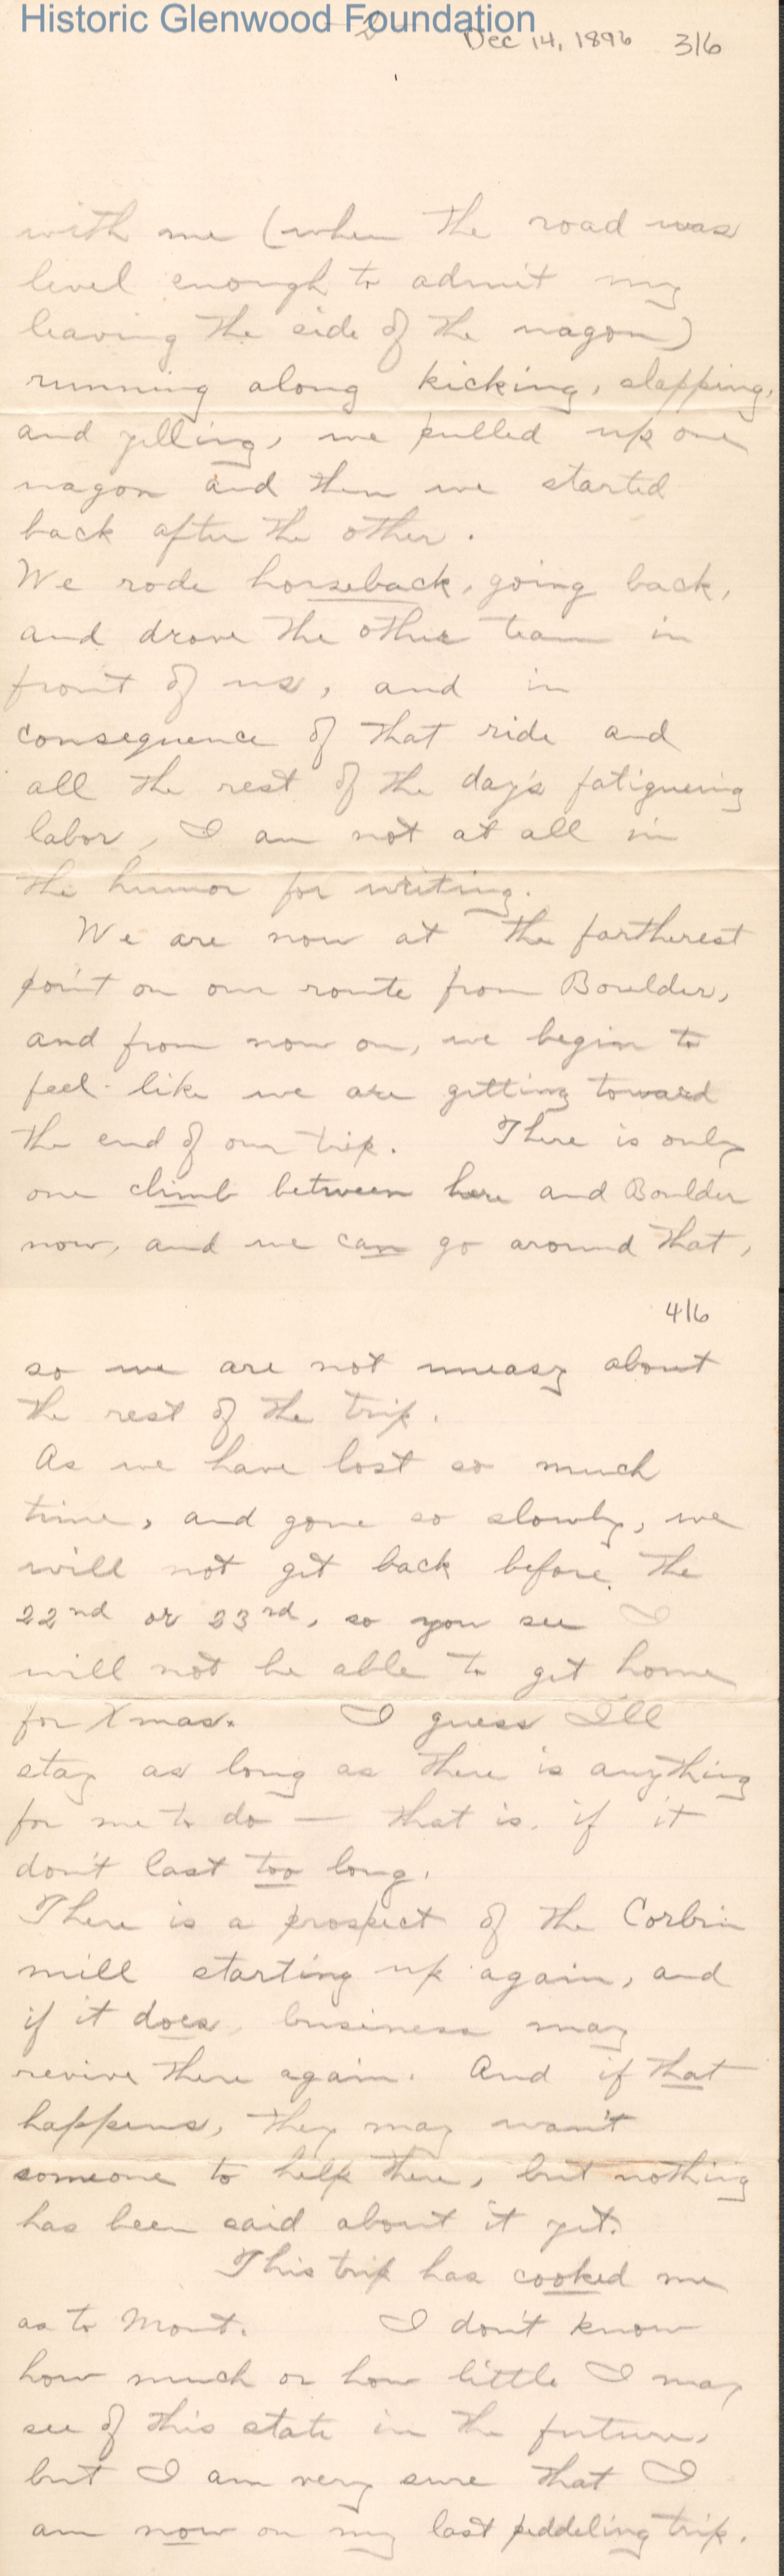 Historic Glenwood Foundation
2
Dec 14, 1896 3/6
with me (when the road was
level enough to admit my
leaving the side of the wagon)
running along kicking, slapping,
and yelling, we pulled up one
wagon and then we started
back after the other.
We rode horseback, going back,
and drove the other team in
front of us, and in
consequence of that ride and
all the rest of the day's fatigueing
labor, I am not at all in
the humor for writing.
We are now at the fartherest
point on our route from Boulder,
and from now on, we begin to
feel like we are getting toward
the end of our trip. There is only
one climb between here and Boulder
now, and we can go around that,
4/6
so we are not uneasy about
the rest of the trip.
As we have lost so much
time, and gone so slowly, we
will not get back before the
22nd or 23rd, so you see I
will not be able to get home
for Xmas. I guess I'll
stay as long as there is anything
for me to do — that is, if it
don't last too long.
There is a prospect of the Corbin
mill starting up again, and
if it does, business may
revive there again. And if that
happens, they may want
someone to help there, but nothing
has been said about it yet.
This trip has cooked me
as to Mont. I don't know
how much or how little I may
see of this state in the future,
but I am very sure that I
am now on my last peddeling trip.